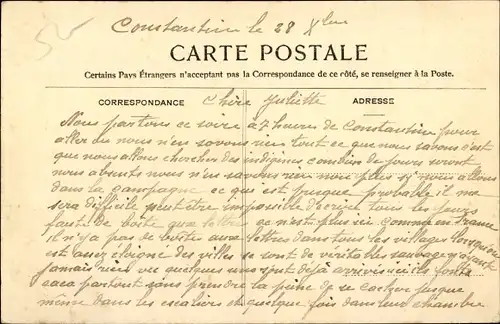 Constantine le 28 Xbre
CARTE POSTALE
Certains Pays Étrangers n'acceptant pas la Correspondance de ce côté, se renseigner à la Poste.
CORRESPONDANCE Chère Juliette ADRESSE
Nous partons ce soire a 7 heures de Constantine pour
aller ou nous n'en savons rien tout ce que nous savons c'est
que nous allons chercher des indigines combien de jours seront
nous absents nous n'en savons rien non plus si nous allons
dans la campagne ce qui est presque probable il me
sera difficile peut être impossible d'écrire tous les jours
faute de boite aux lettres ce n'est plus ici comme en France
il n'y a pas de boites aux lettres dans tous les villages lorsqu'on
est assez éloigné des villes se sont de véritables sauvages n'ayant
jamais rien vu quelques uns sont déjà arrivés ici ils font
caca partout sans prendre la peine de se cacher jusque
même dans les escaliers et quelque fois dans leur chambre